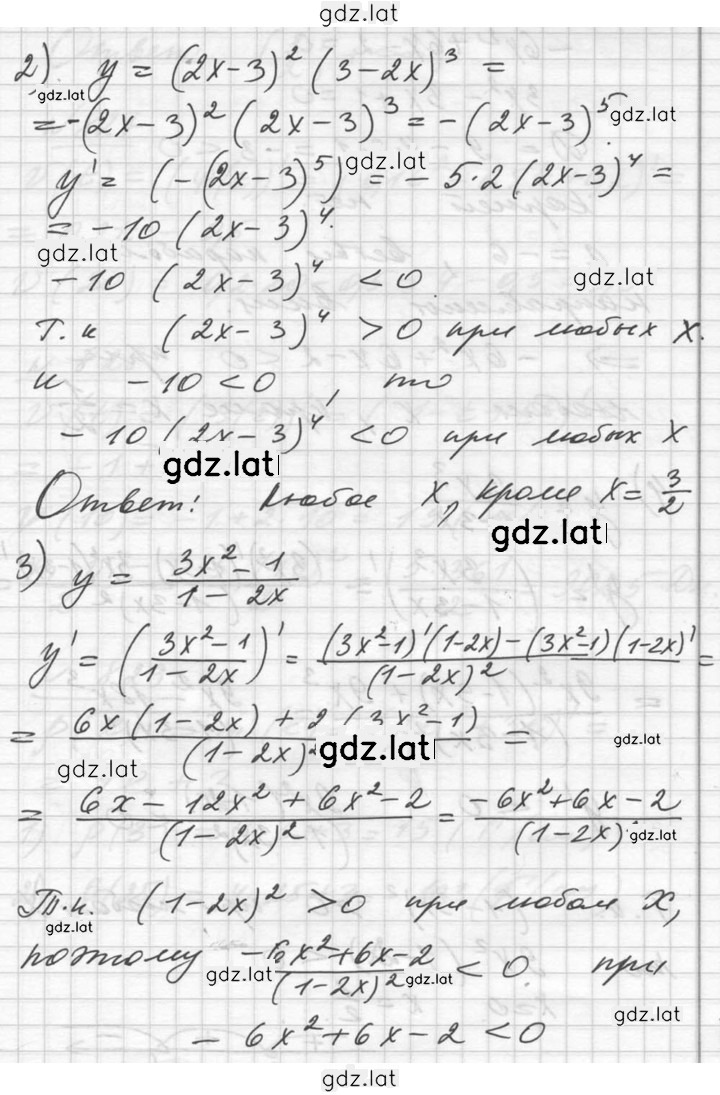 gdz.lat
2) y = (2x-3)² (3-2x)³ =
gdz.lat
= -(2x-3)² (2x-3)³ = -(2x-3)⁵ gdz.lat
gdz.lat
y' = (-(2x-3)⁵)' = -5·2(2x-3)⁴ =
= -10 (2x-3)⁴.
gdz.lat
-10 (2x-3)⁴ < 0 gdz.lat
т.к (2x-3)⁴ > 0 при любых x.
и -10 < 0, то
-10 (2x-3)⁴ < 0 при любых x
gdz.lat
Ответ: любое x, кроме x = 3/2
gdz.lat
3) y = (3x²-1)/(1-2x)
y' = ((3x²-1)/(1-2x))' = ((3x²-1)'(1-2x)-(3x²-1)(1-2x)')/(1-2x)² =
= (6x(1-2x)+2(3x²-1))/(1-2x)² =
gdz.lat gdz.lat gdz.lat
= (6x-12x²+6x²-2)/(1-2x)² = (-6x²+6x-2)/(1-2x)
gdz.lat
Т.к. (1-2x)² > 0 при любом x,
gdz.lat
поэтому (-6x²+6x-2)/(1-2x)² < 0 при
gdz.lat gdz.lat
gdz.lat
-6x²+6x-2 < 0
gdz.lat